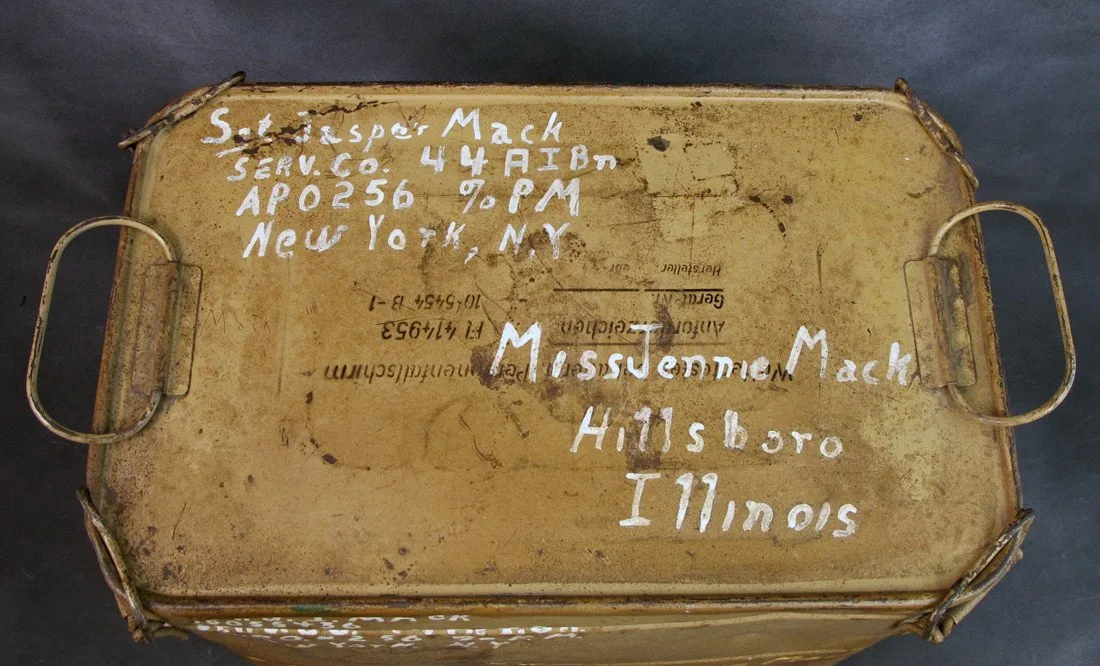 Sgt Jasper Mack
SERV. Co. 44 AIBn
APO 256 % PM
New York, N,Y
Hersteller:
Gerät-Nr. 10-5454 B-1
Anforderzeichen Fl 414953
Personenfallschirm
Miss Jennie Mack
Hillsboro
Illinois
York NY